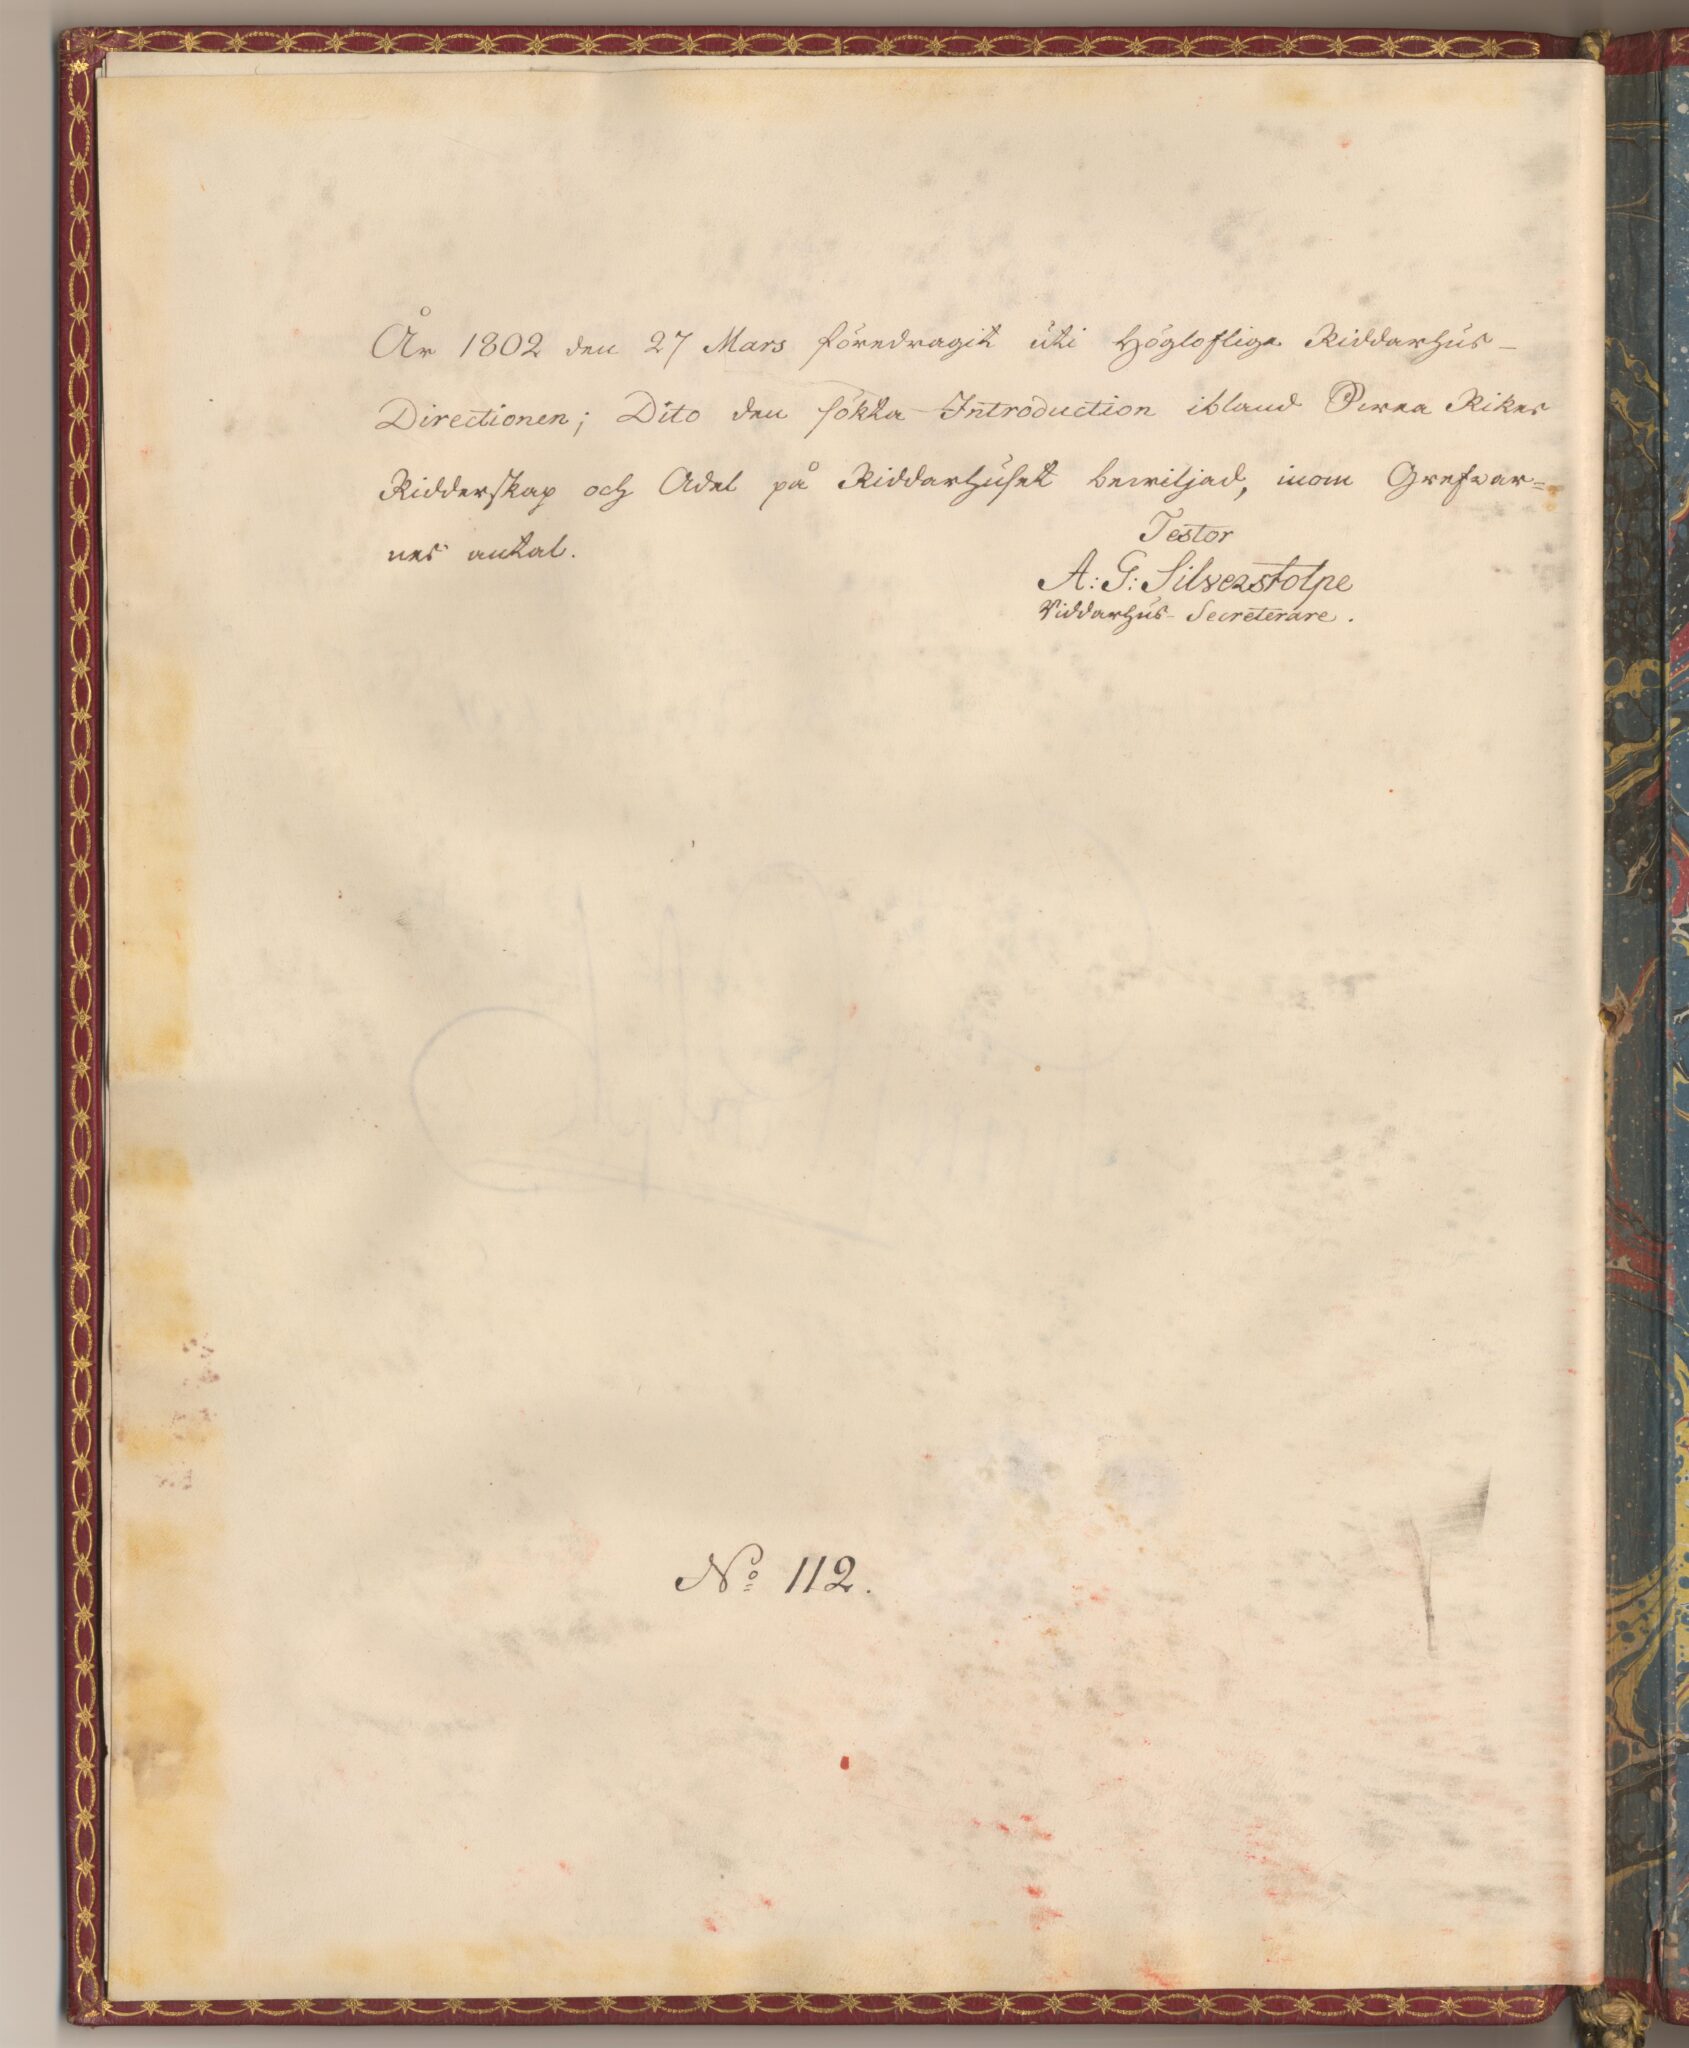 År 1802 den 27 Mars föredragit uti Höglofliga Riddarhus-
Directionen; Dito den sökta Introduction ibland Swea Rikes
Ridderskap och Adel på Riddarhuset bewiljad, inom Grefvar=
nes antal.
Testor
A: G: Silverstolpe
Riddarhus-Secreterare.
No 112.